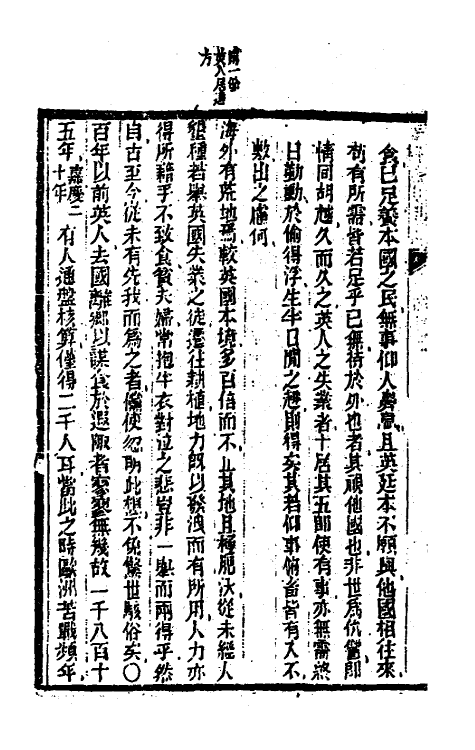 前一條
英人居遠
方
食已足養本國之民無事仰人鼻息且英廷本不願與他國相往來
苟有所需皆若足乎已無待於外也者其頑他國也非世爲仇讐卽
情同胡越久而久之英人之失業者十居其五卽使有事亦無需終
日勤動於偷得浮生半日閒之趣則得矣其若仰事俯畜皆有入不
敷出之虞何
海外有荒地焉較英國本境多百倍而不止其地且極肥沃從未經人
墾種若舉英國失業之徒遷往耕植地力旣以發洩而有所用人力亦
得所藉手不致食貧夫婦常抱牛衣對泣之悲豈非一舉而兩得乎然
自古至今從未有先我而爲之者儻使忽剏此想不免驚世駭俗矣〇
百年以前英人去國離鄉以謀食於遐陬者寥寥無幾故一千八百十
五年嘉慶二十年有人通盤核算僅得二千人耳當此之時歐洲苦戰頻年